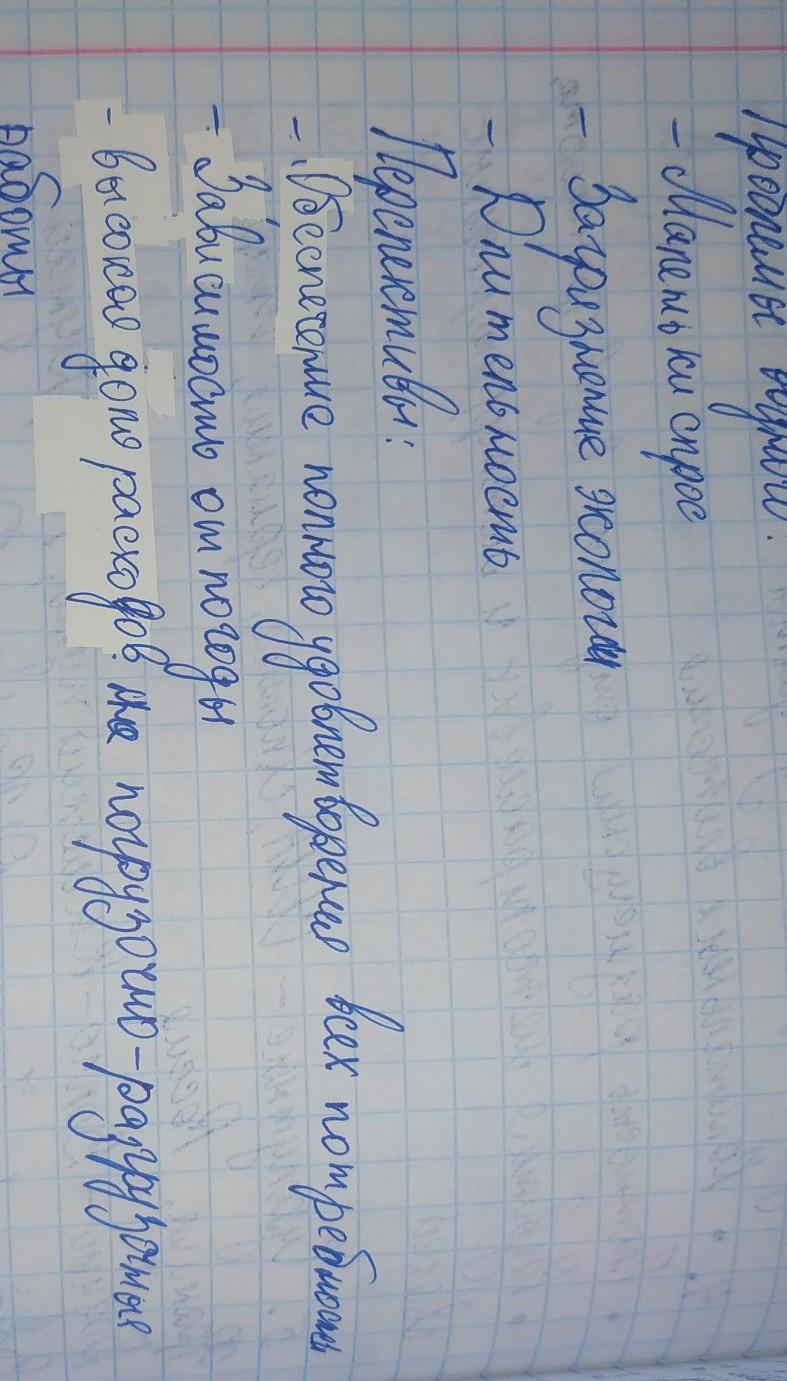 Проблемы водного:
- Маленьки спрос
- Загрязнение экологии
- Длительность
Перспективы:
- Обеспечение полного удовлетворения всех потребность
- Зависимость от погоды
- высокая доля расходов на погрузочно-разгрузочные
работы